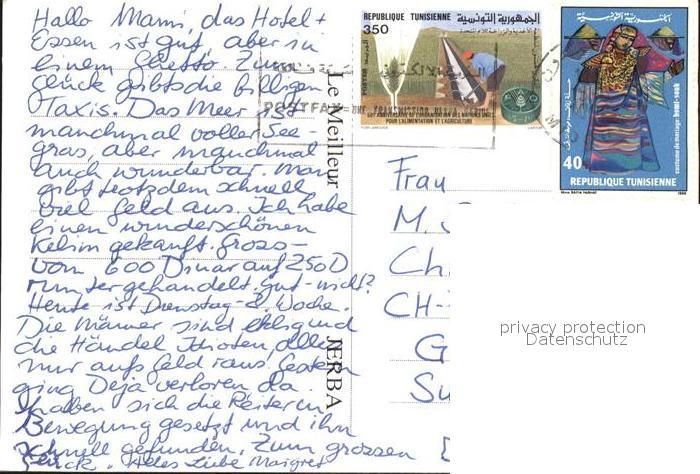 Hallo Mami, das Hotel +
Essen ist gut, aber in
einem Ghetto. Zum
Glück gibts die billigen
Taxis. Das Meer ist
manchmal voller See-
gras, aber manchmal
auch wunderbar. Man
gibt trotzdem schnell
viel Geld aus. Ich habe
einen wunderschönen
Kelim gekauft. Gross-
von 600 Dinar auf 250 D
runtergehandelt. Gut - nicht?
Heute ist Dienstag 2. Woche.
Die Männer sind und
die Händel Idioten, alle
nur aufs Geld raus. Gestern
ging Deja verloren da
haben sich die Reiter in
Bewegung gesetzt und ihn
schnell gefunden. Zum grossen
Glück. Alles Liebe Maigret
Le Meilleur
JERBA
REPUBLIQUE TUNISIENNE الجمهورية التونسية
350
POSTFAX=UNE TRANSMISSION
50ème ANNIVERSAIRE DE L'ORGANISATION DES NATIONS UNIES
POUR L'ALIMENTATION ET L'AGRICULTURE
الجمهورية التونسية
costume de mariage hemi-souk
40
REPUBLIQUE TUNISIENNE
Frau
M.
Ch
CH-
G
Su
privacy protection
Datenschutz